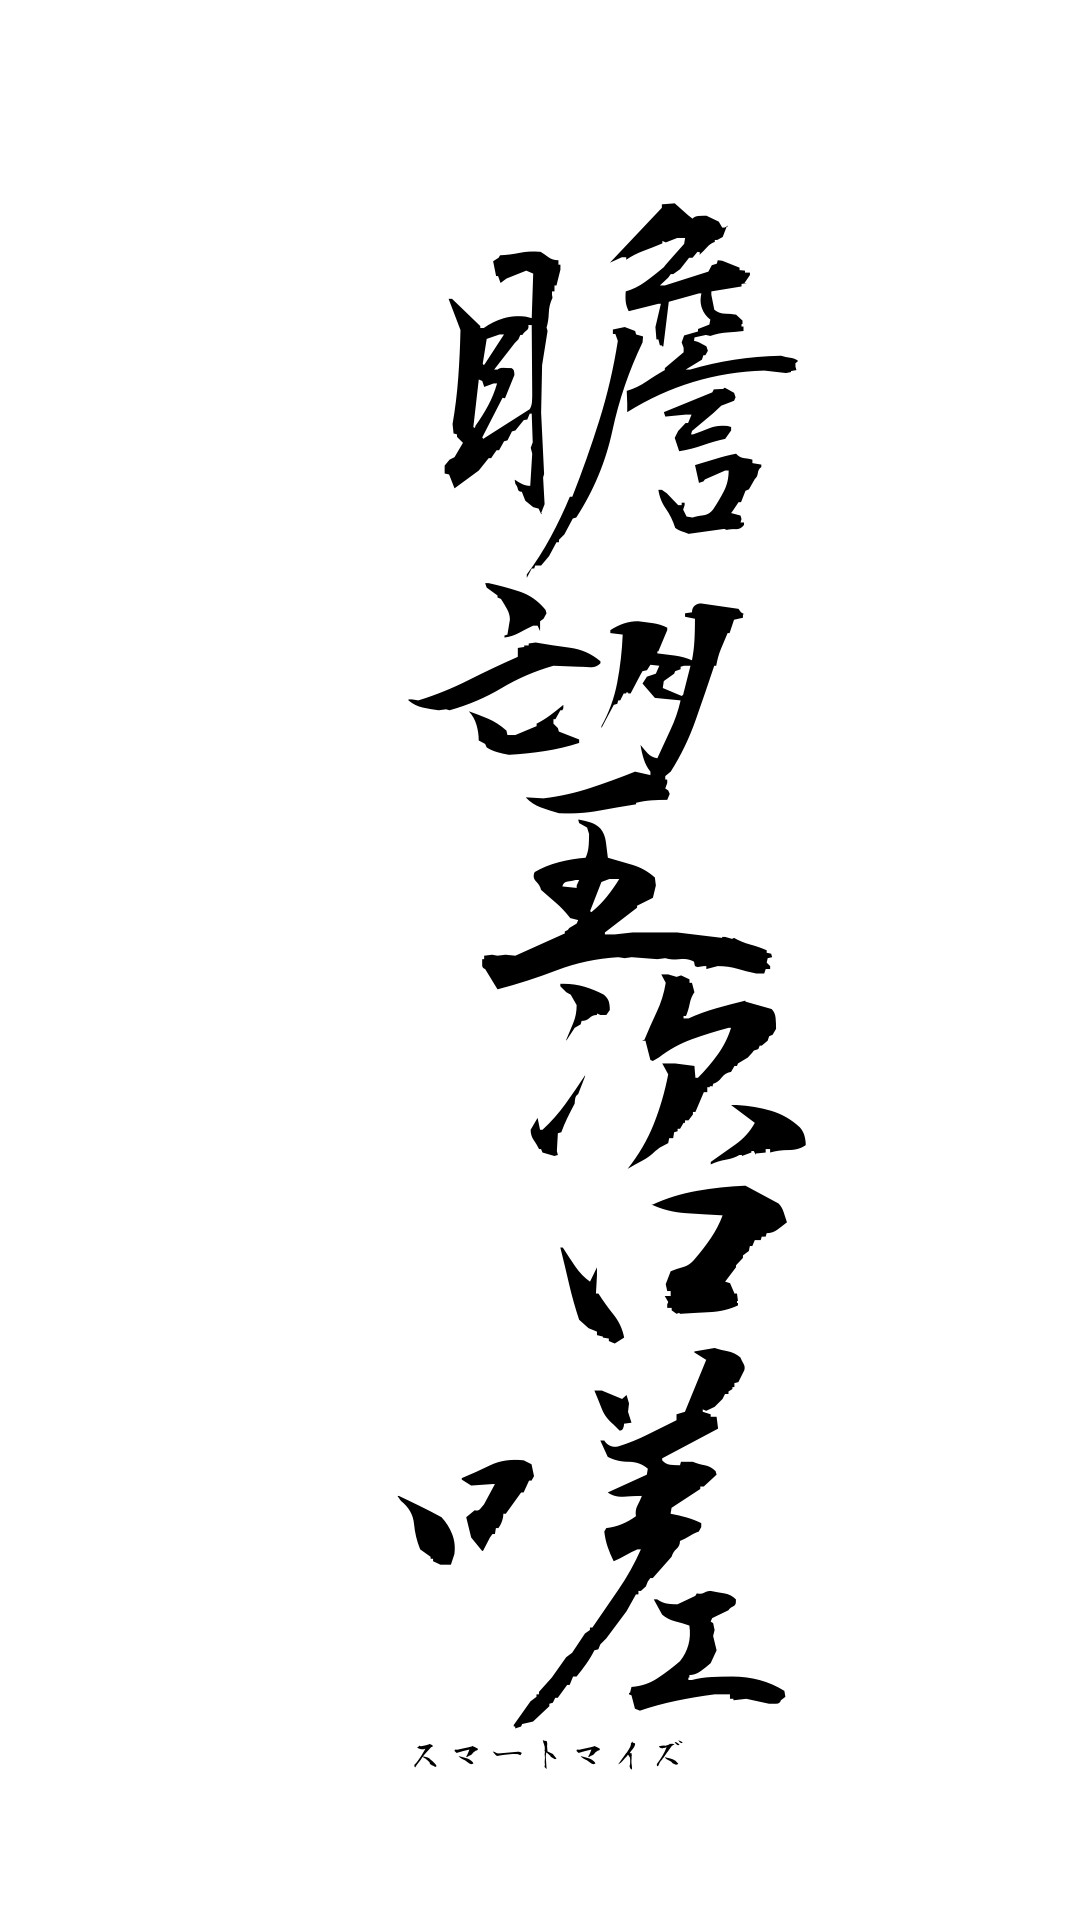 瞻望咨嗟
スマートマイズ